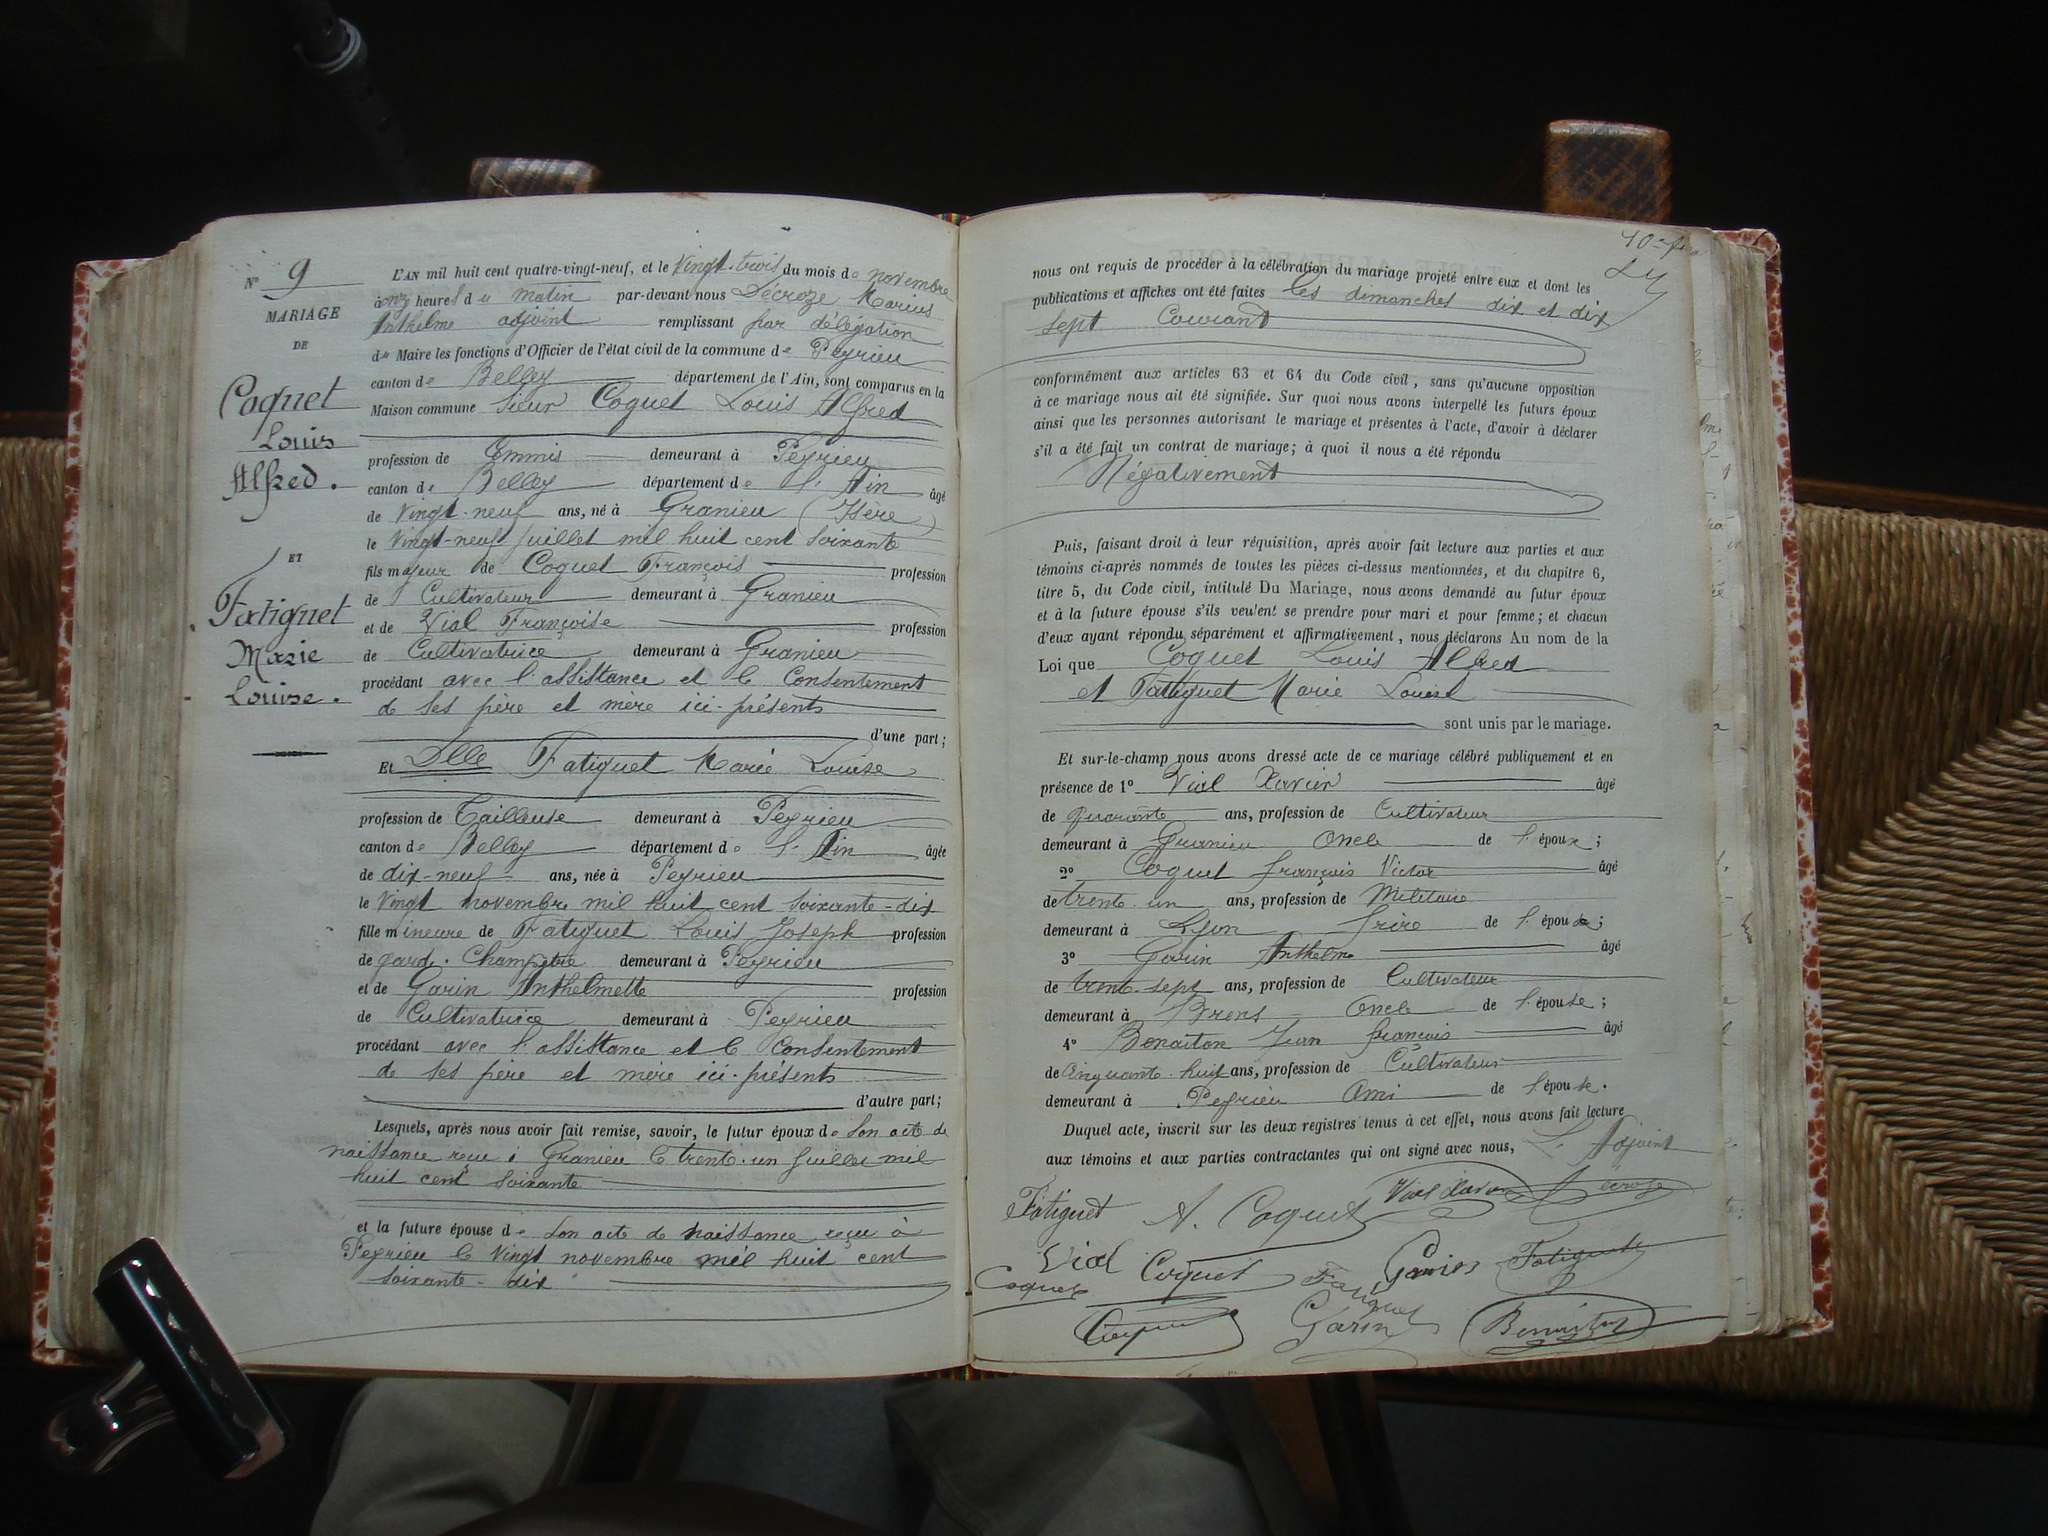 N° 9
MARIAGE
DE
Coquet
Louis
Alfred.
ET
Fatiguet
Marie
Louise.
L'AN mil huit cent quatre-vingt-neuf, et le Vingt-trois du mois de novembre
à onz heures du matin par-devant nous Décroze Marius
Anthelme adjoint remplissant par délégation
du Maire les fonctions d'Officier de l'état civil de la commune de Peyrieu
canton de Belley département de l'Ain, sont comparus en la
Maison commune Sieur Coquet Louis Alfred
profession de Commis demeurant à Peyrieu
canton de Belley département de l'Ain âgé
de Vingt-neuf ans, né à Granieu (Isère)
le Vingt-neuf Juillet mil huit cent soixante
fils majeur de Coquet François profession
de Cultivateur demeurant à Granieu
et de Vial Françoise profession
de Cultivatrice demeurant à Granieu
procédant avec l'assistance et le Consentement
de ses père et mère ici-présents
d'une part;
Et Dlle Fatiguet Marie Louise
profession de Tailleuse demeurant à Peyrieu
canton de Belley département de l'Ain âgée
de dix-neuf ans, née à Peyrieu
le Vingt novembre mil huit cent soixante-dix
fille mineure de Fatiguet Louis Joseph profession
de garde-Champêtre demeurant à Peyrieu
et de Garin Anthelmette profession
de Cultivatrice demeurant à Peyrieu
procédant avec l'assistance et le Consentement
de ses père et mère ici-présents
d'autre part;
Lesquels, après nous avoir fait remise, savoir, le futur époux de son acte de
naissance reçu à Granieu le trente-un Juillet mil
huit cent soixante
et la future épouse de son acte de naissance reçu à
Peyrieu le Vingt novembre mil huit cent
soixante-dix
nous ont requis de procéder à la célébration du mariage projeté entre eux et dont les
publications et affiches ont été faites les dimanches dix et dix
sept Courant
conformément aux articles 63 et 64 du Code civil, sans qu'aucune opposition
à ce mariage nous ait été signifiée. Sur quoi nous avons interpellé les futurs époux
ainsi que les personnes autorisant le mariage et présentes à l'acte, d'avoir à déclarer
s'il a été fait un contrat de mariage; à quoi il nous a été répondu
Négativement
Puis, faisant droit à leur réquisition, après avoir fait lecture aux parties et aux
témoins ci-après nommés de toutes les pièces ci-dessus mentionnées, et du chapitre 6,
titre 5, du Code civil, intitulé Du Mariage, nous avons demandé au futur époux
et à la future épouse s'ils veulent se prendre pour mari et pour femme; et chacun
d'eux ayant répondu séparément et affirmativement, nous déclarons Au nom de la
Loi que Coquet Louis Alfred
et Fatiguet Marie Louise
sont unis par le mariage.
Et sur-le-champ nous avons dressé acte de ce mariage célébré publiquement et en
présence de 1° Vial Xavier âgé
de quarante ans, profession de Cultivateur
demeurant à Granieu Oncle de l'époux;
2° Coquet François Victor âgé
de trente-un ans, profession de Militaire
demeurant à Lyon frère de l'époux;
3° Garin Anthelme âgé
de trente-sept ans, profession de Cultivateur
demeurant à Brens Oncle de l'épouse;
4° Benoiton Jean François âgé
de cinquante-huit ans, profession de Cultivateur
demeurant à Peyrieu Ami de l'épouse.
Duquel acte, inscrit sur les deux registres tenus à cet effet, nous avons fait lecture
aux témoins et aux parties contractantes qui ont signé avec nous, L'Adjoint
Fatiguet A. Coquet Vial Xavier Décroze
Vial Coquet Garin Fatiguet
Coquet Fatiguet
Coquet Garin Benoiton